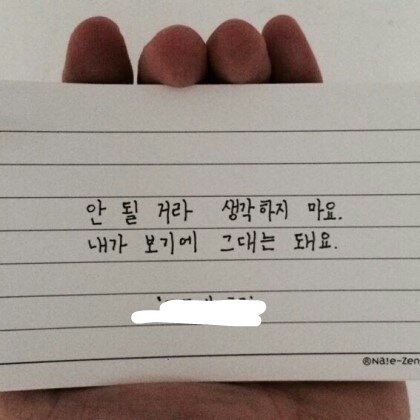 안 될 거라 생각하지 마요.
내가 보기에 그대는 돼요.
®Na!e-Zen